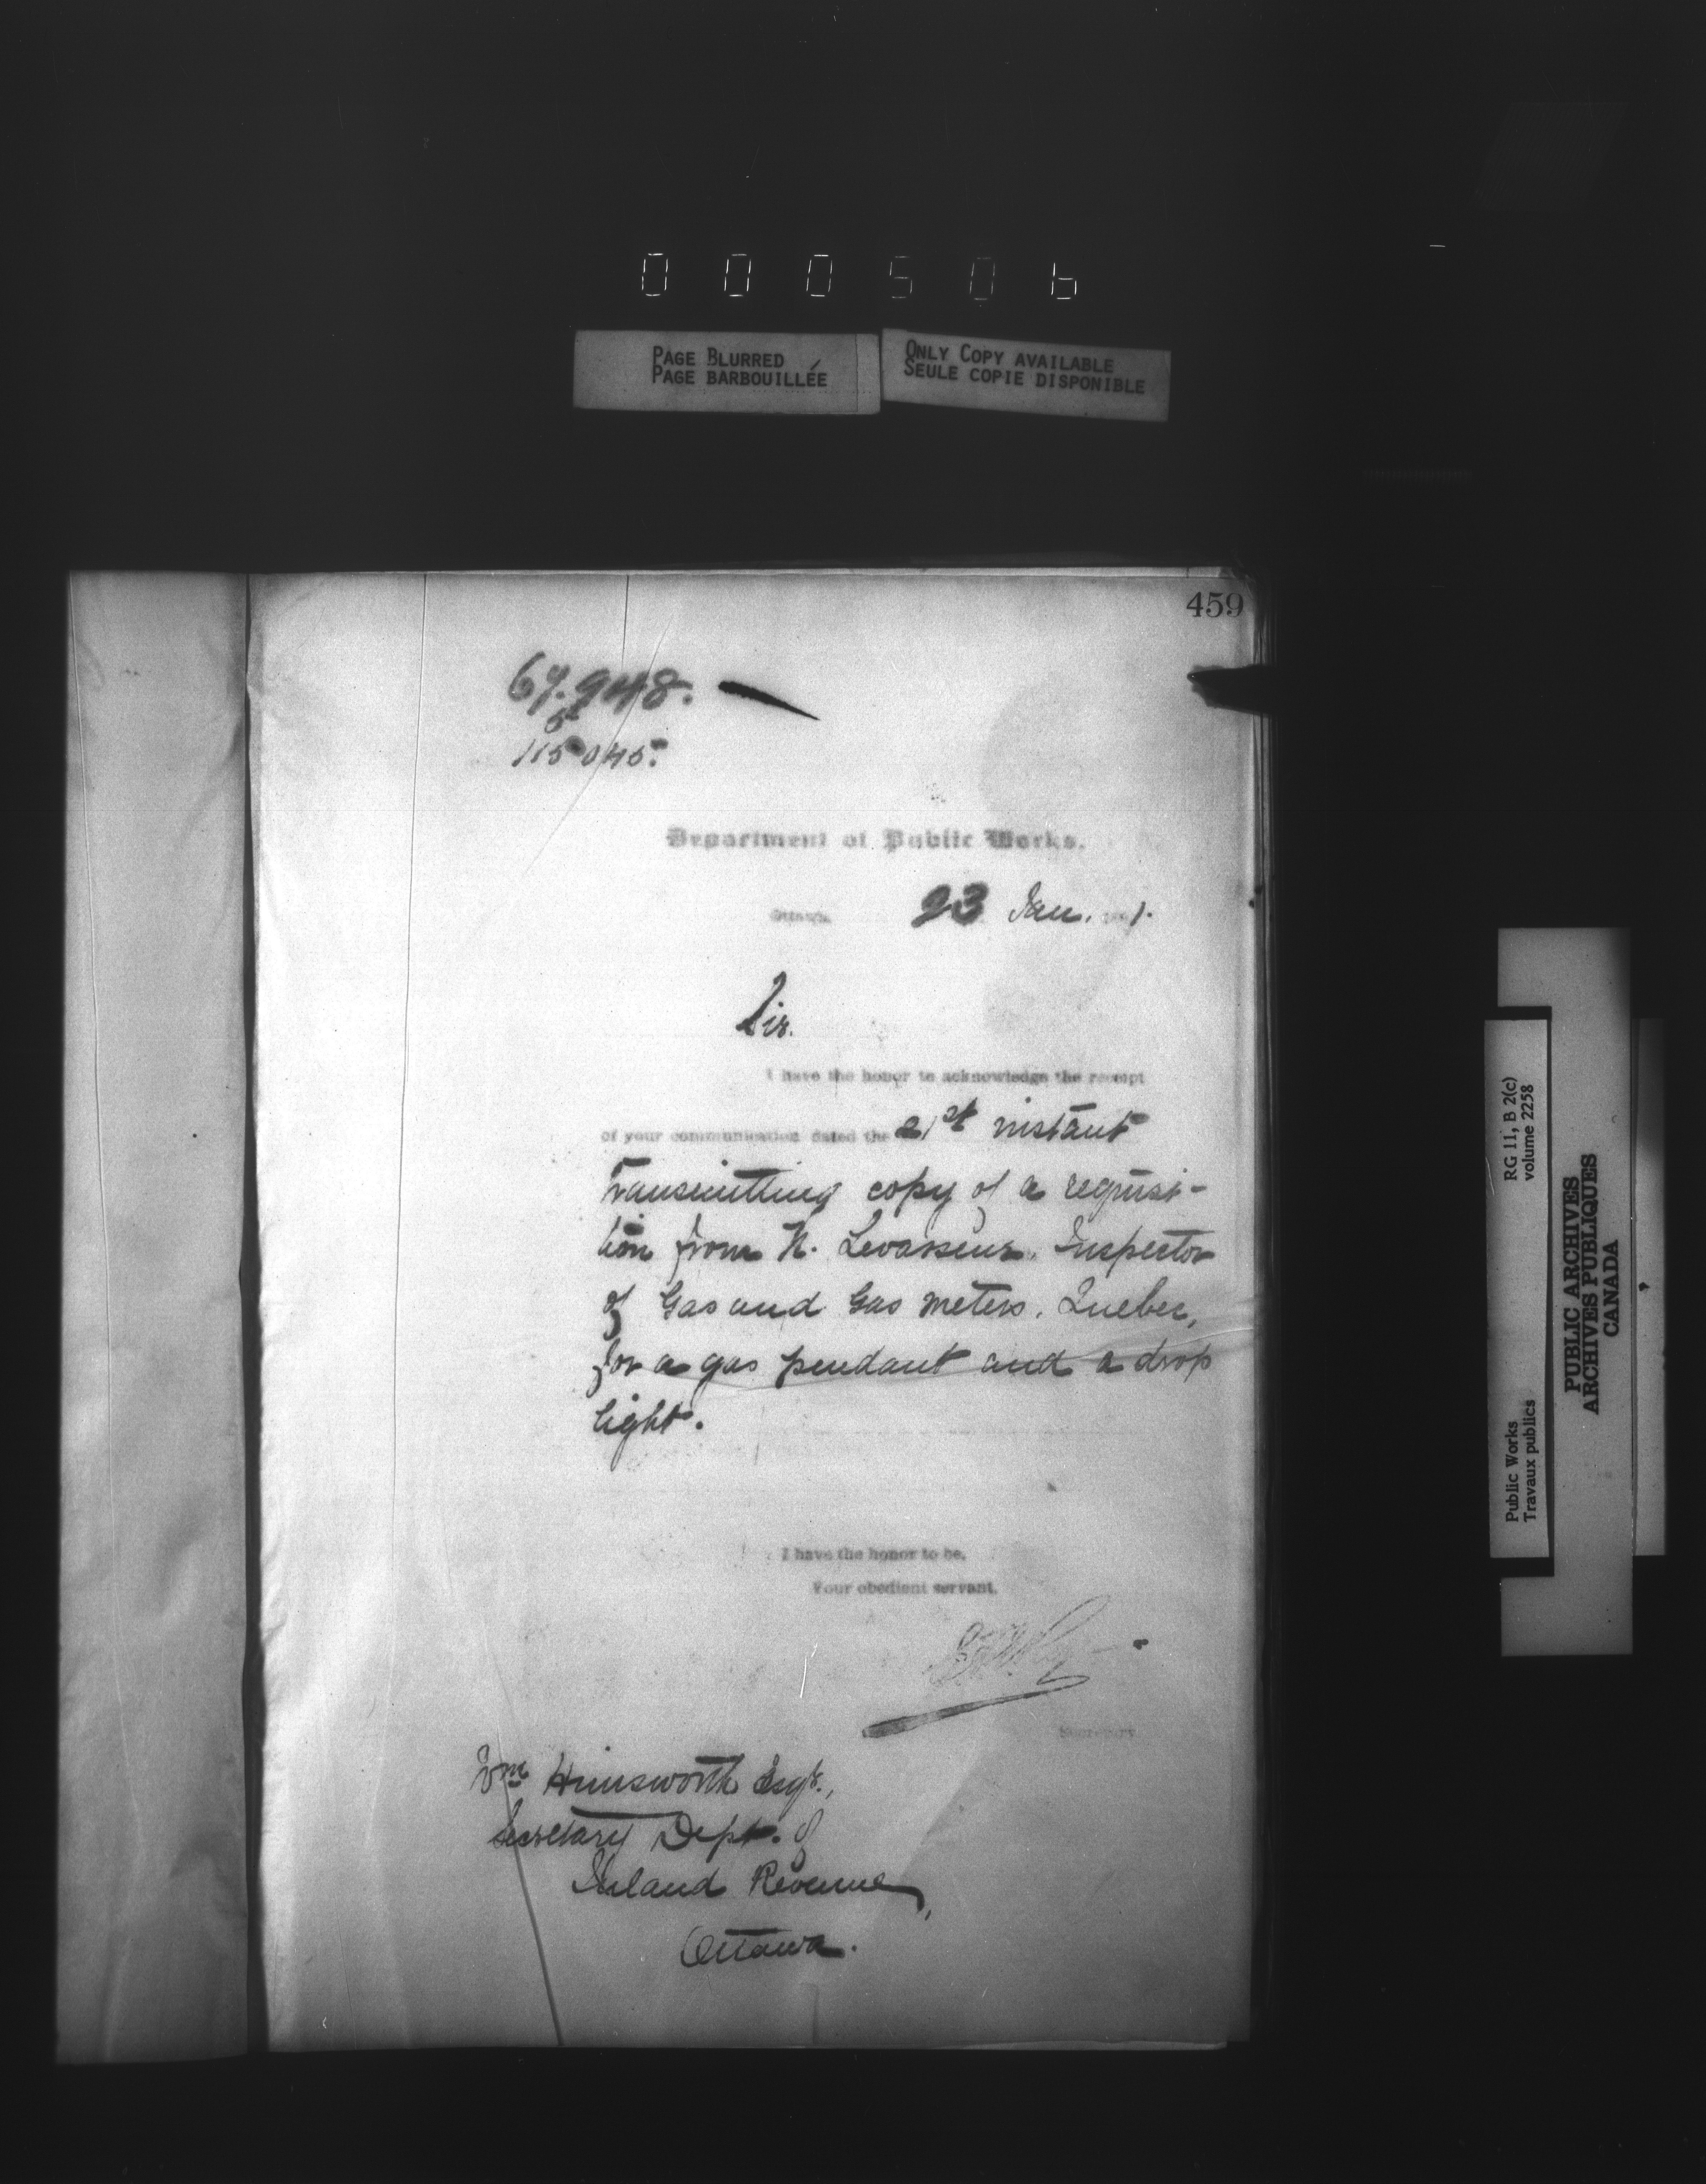 000506
PAGE BLURRED
PAGE BARBOUILLÉE
ONLY COPY AVAILABLE
SEULE COPIE DISPONIBLE
459
67.948.
5
115045.
Department of Public Works.
Ottawa, 23 Jan. 1.
Sir.
I have the honor to acknowledge the receipt
of your communication dated the 21st instant
transmitting copy of a requisi-
tion from N. Levasseur. Inspector
of Gas and Gas meters. Quebec,
for a gas pendant and a drop
light.
I have the honor to be,
Your obedient servant,
Secretary
Wm Himsworth Esqr.,
Secretary Dept. of
Inland Revenue,
Ottawa.
Public Works
Travaux publics
RG 11, B 2(c)
volume 2258
PUBLIC ARCHIVES
ARCHIVES PUBLIQUES
CANADA